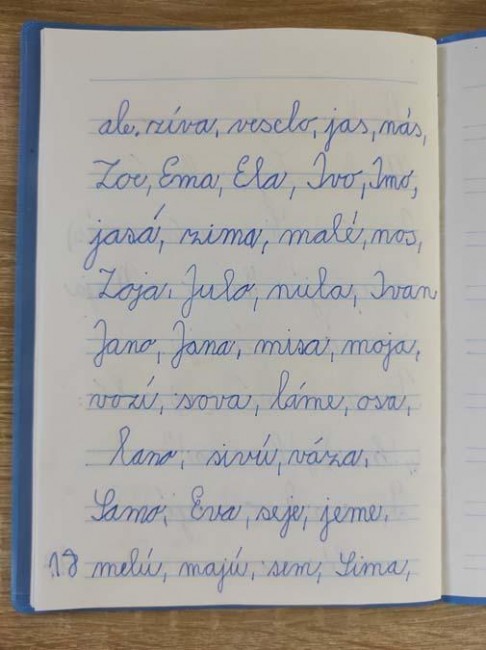 ale. zíva, veselo, jas, nás,
Zoe, Ema, Ela, Ivo, Imo,
jasá, zima, malé, nos,
Zoja. Julo, nula, Ivan
Jano, Jana, misa, moja,
vozí, sova, láme, osa,
lano, sivú, váza.
Samo, Eva, seje, jeme.
18 melú, majú, sem, Sima,